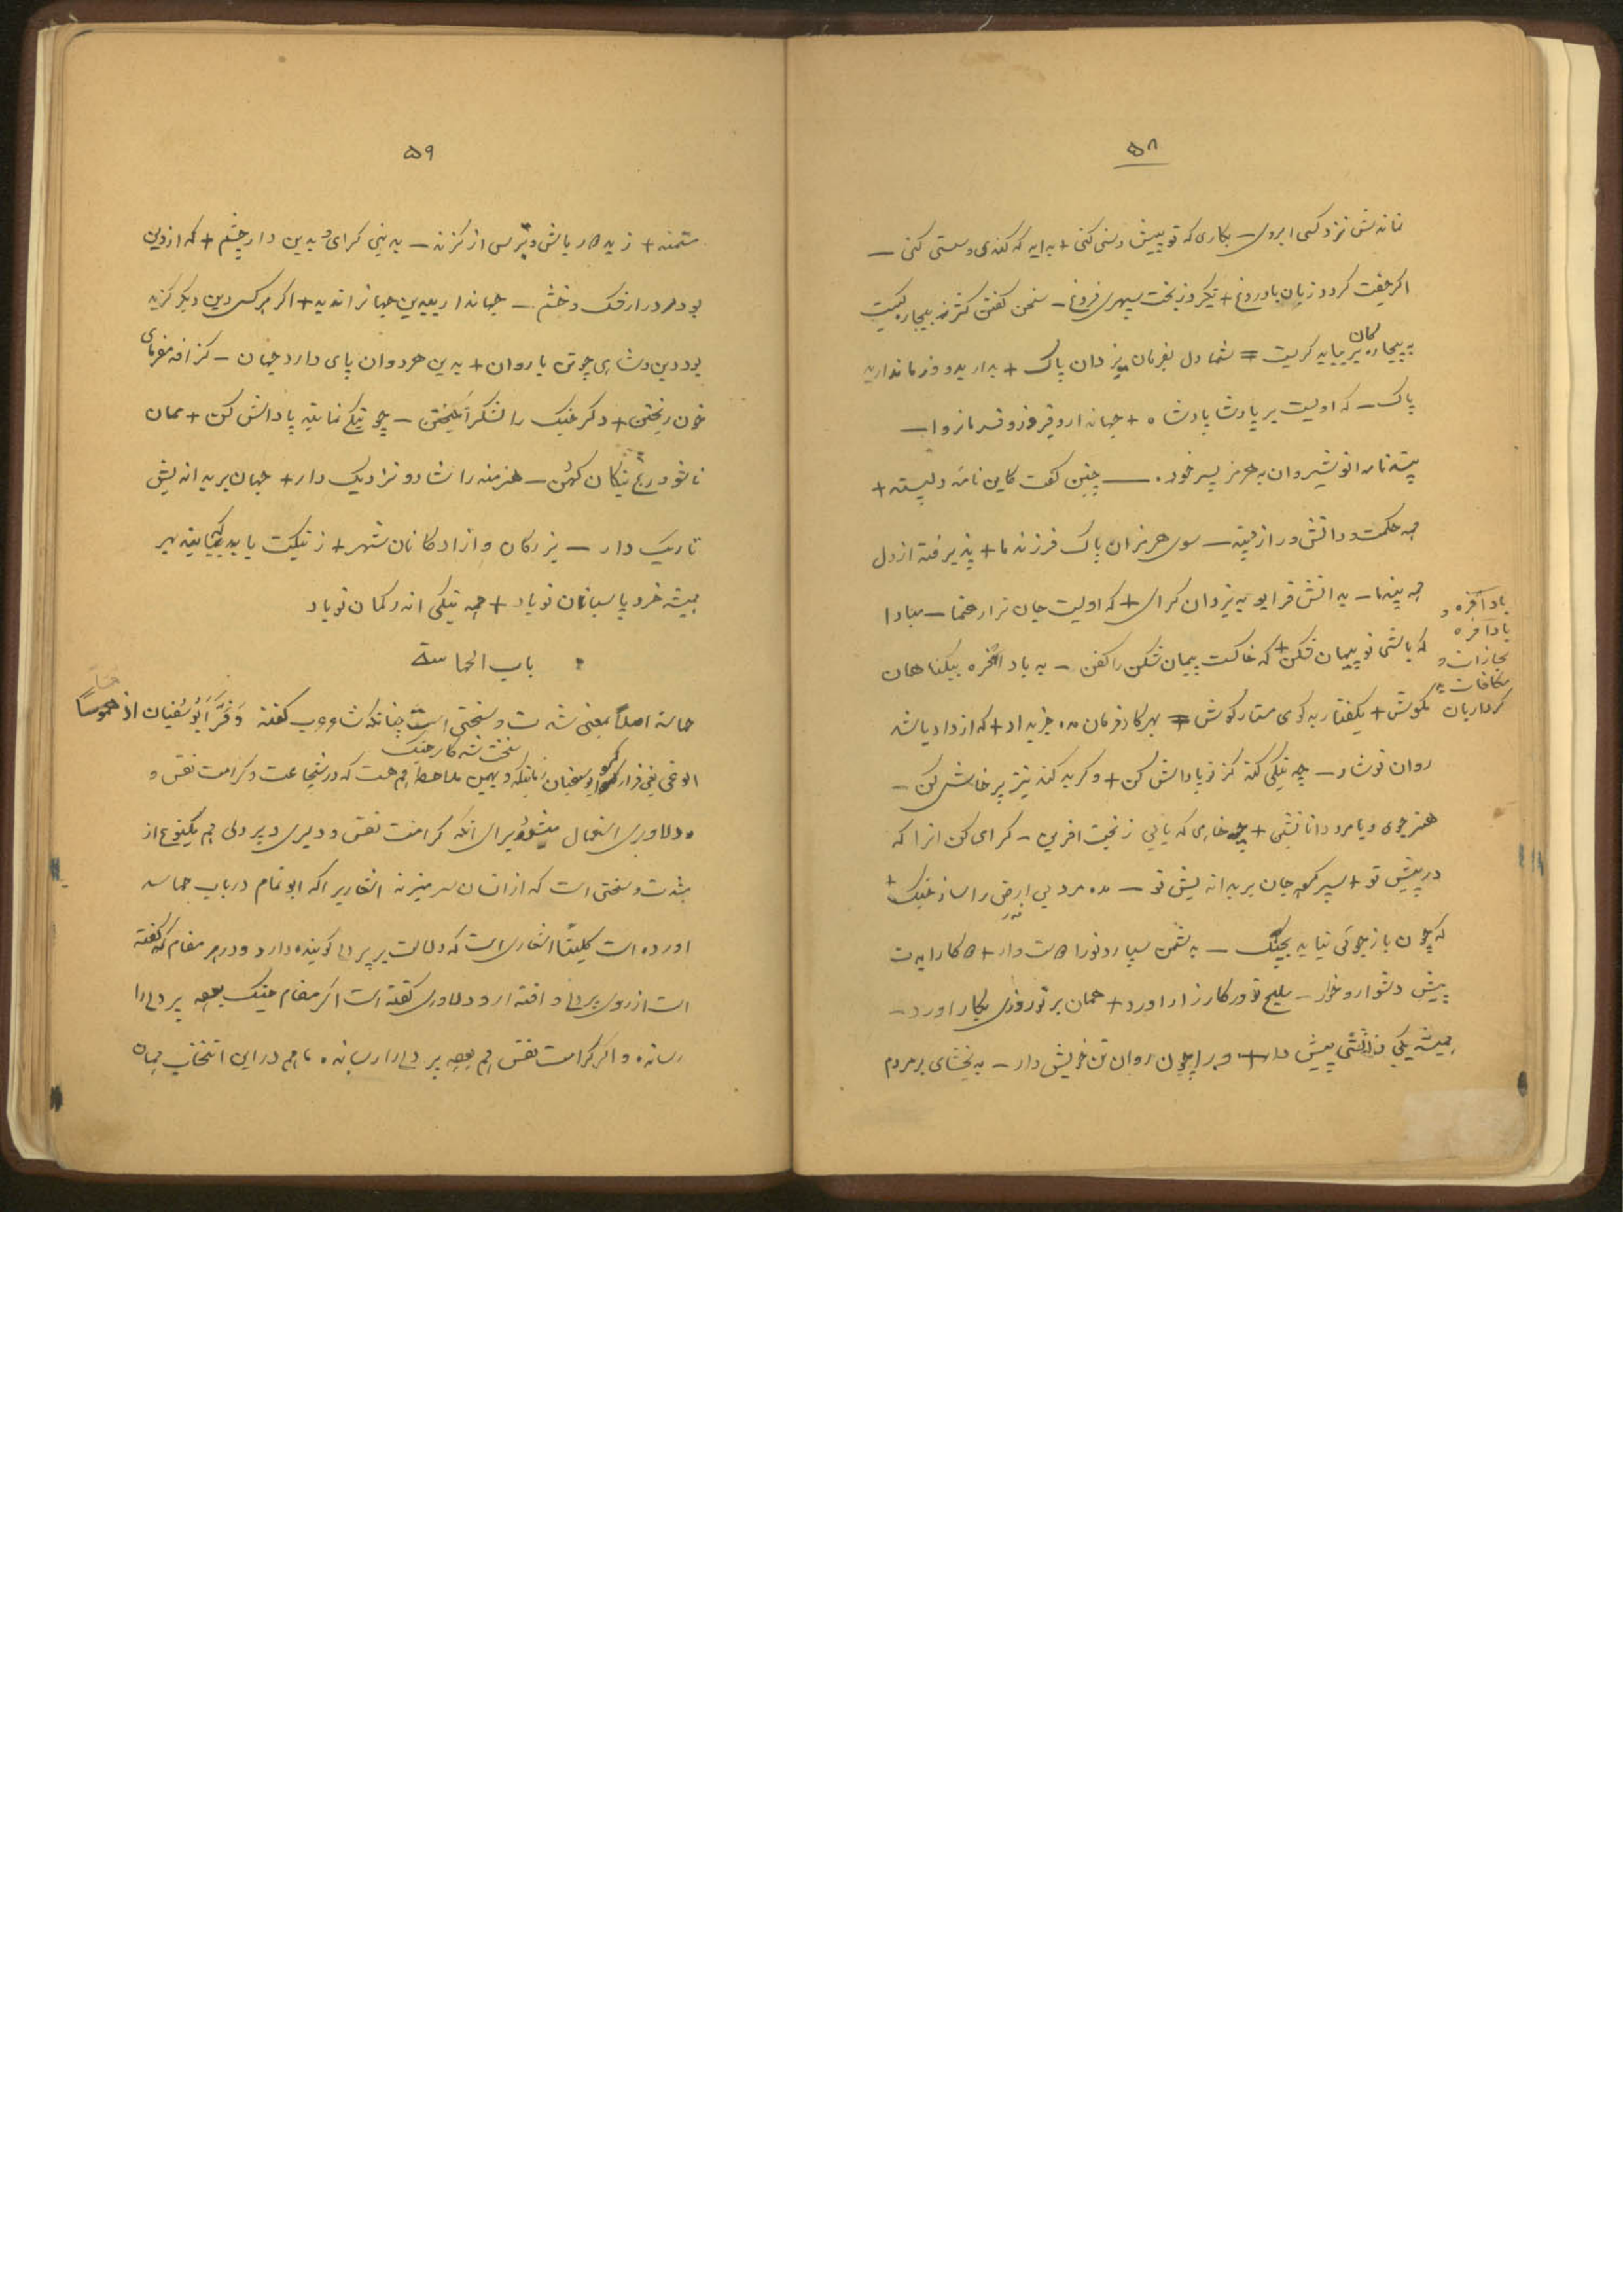 ۵۸
نماندش نزد کسی ابروی — بکاری که تو پیش دستی کنی + به ایه که کندی و سستی کنی —
اکر جفت کردد زبان با دروغ + نکیرد ز بخت سپهری فروغ — سخن کفتن کژ ز بیچارکیست
به بیچارکان بر بباید کریست = شما دل بفرمان یزدان پاک + بدارید وز ما ندارید
پاک — که اویست بر پادشا پادشاه + جهاندار و فیروز و فرمانروا —
پندنامه انوشیروان به هرمز پسر خود. — چنین کفت کاین نامه دلپسند +
همه حکمت و دانش و راز و پند — سوی هرمز ان پاک فرزند ما + پذیرفته از دل
همه پند ما — به دانش فزای و به یزدان کرای + که اویست جان ترا رهنما — مبادا
که باشی تو پیمان شکن + که خاکست پیمان شکن را کفن — به باد افره بیکناهان
بادآفره و
بادآفره
مجازات و
مکافات
مکوش + بکفتار بدکوی مسپار کوش = بهر کار فرمان مده جز بداد + که از داد باشد
روان تو شاد — چو نیکی کند کس تو پاداش کن + وکر بد کند نیز پرخاش کن —
هنرجوی و با مرد دانا نشین + چو خواهی که یابی ز بخت افرین — کرامی کن انرا که
در پیش تو + سپر کرد جان بر بداندیش تو — مده مرد بی ارض را ساز جنک +
که چون بازجوئی نیاید بجنک — به دشمن سپارد تورا دوستدار + دو کار ایدت
پیش دشوار و خوار — سلیح تو در کارزار اورد + همان بر تو روزی بکار اورد —
همیشه یکی دانشی پیش دار + ورا چون روان تن خویش دار — به بخشای بر مردم
۵۹
مستمند + ز بد دور باش و بترس از کزند — به نیکی کرای و بدین دار چشم + که از دین
بود مرد را رشک و خشم — جهاندار بیدین جهانرا ندید + اکر هر کسی دین دیکر کزید
بود دین و شاهی چو تن با روان + بدین هر دوان پای دارد جهان — کزافه مفرمای
خون ریختن + دکر جنک را لشکر انکیختن — چو نیکی نمایند پاداش کن + ممان
تا شود رنج نیکان کهن — هنرمند را شاد و نزدیک دار + جهان بر بداندیش
تاریک دار — بزرکان و ازادکانان شهر + ز نیکیت باید که یابند بهر
همیشه خرد پاسبان تو باد + همه نیکی اندر کمان تو باد
باب الحماسة
حماسة اصلاً بمعنی شدت و سختی است چنانکه شاعر عرب کفته وَفَرَّ أَبُو سُفْیان اذ حمس
الوغی یعنی فرار کرد ابوسفیان زمانیکه سخت شد کار جنک و بهمین ملاحظه هم هست که در شجاعت و کرامت نفس و
دلاوری استعمال میشود برای انکه کرامت نفس و دلیری و پر دلی هم یکنوع از
شدت و سختی است که از انسان سر میزند اشعاریرا که ابو تمام در باب حماسه
اورده است کلیتاً اشعاری است که دلالت بر پر دلی کوینده دارد و در هر مقام که کفته
است از روی پر دلی و اقتدار و دلاوری کفته است اکر مقام جنک بوده پر دلی را
رسانده و اکر کرامت نفس هم بوده پر دلی را رسانده ما هم در این انتخاب همان